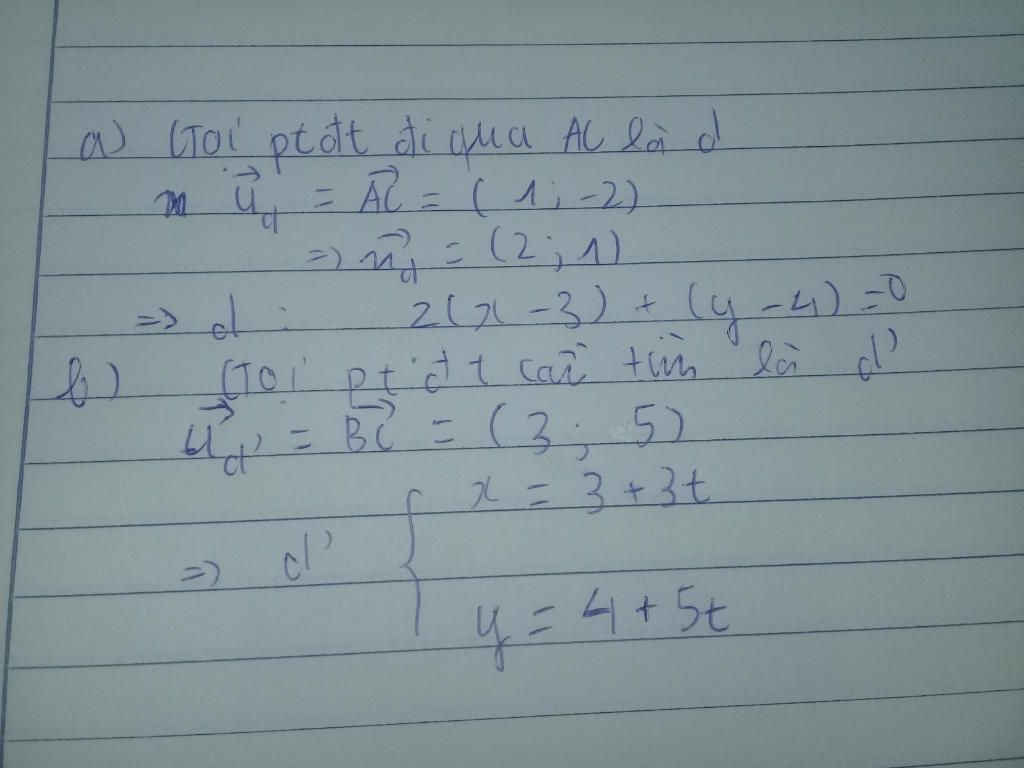 a) Gọi ptđt đi qua AC là d
u⃗_d = AC⃗ = ( 1 ; -2)
=> n⃗_d = (2 ; 1)
=> d : 2(x - 3) + (y - 4) = 0
b) Gọi ptđt cần tìm là d'
u⃗_d' = BC⃗ = (3 ; 5)
x = 3 + 3t
=> d' {
y = 4 + 5t